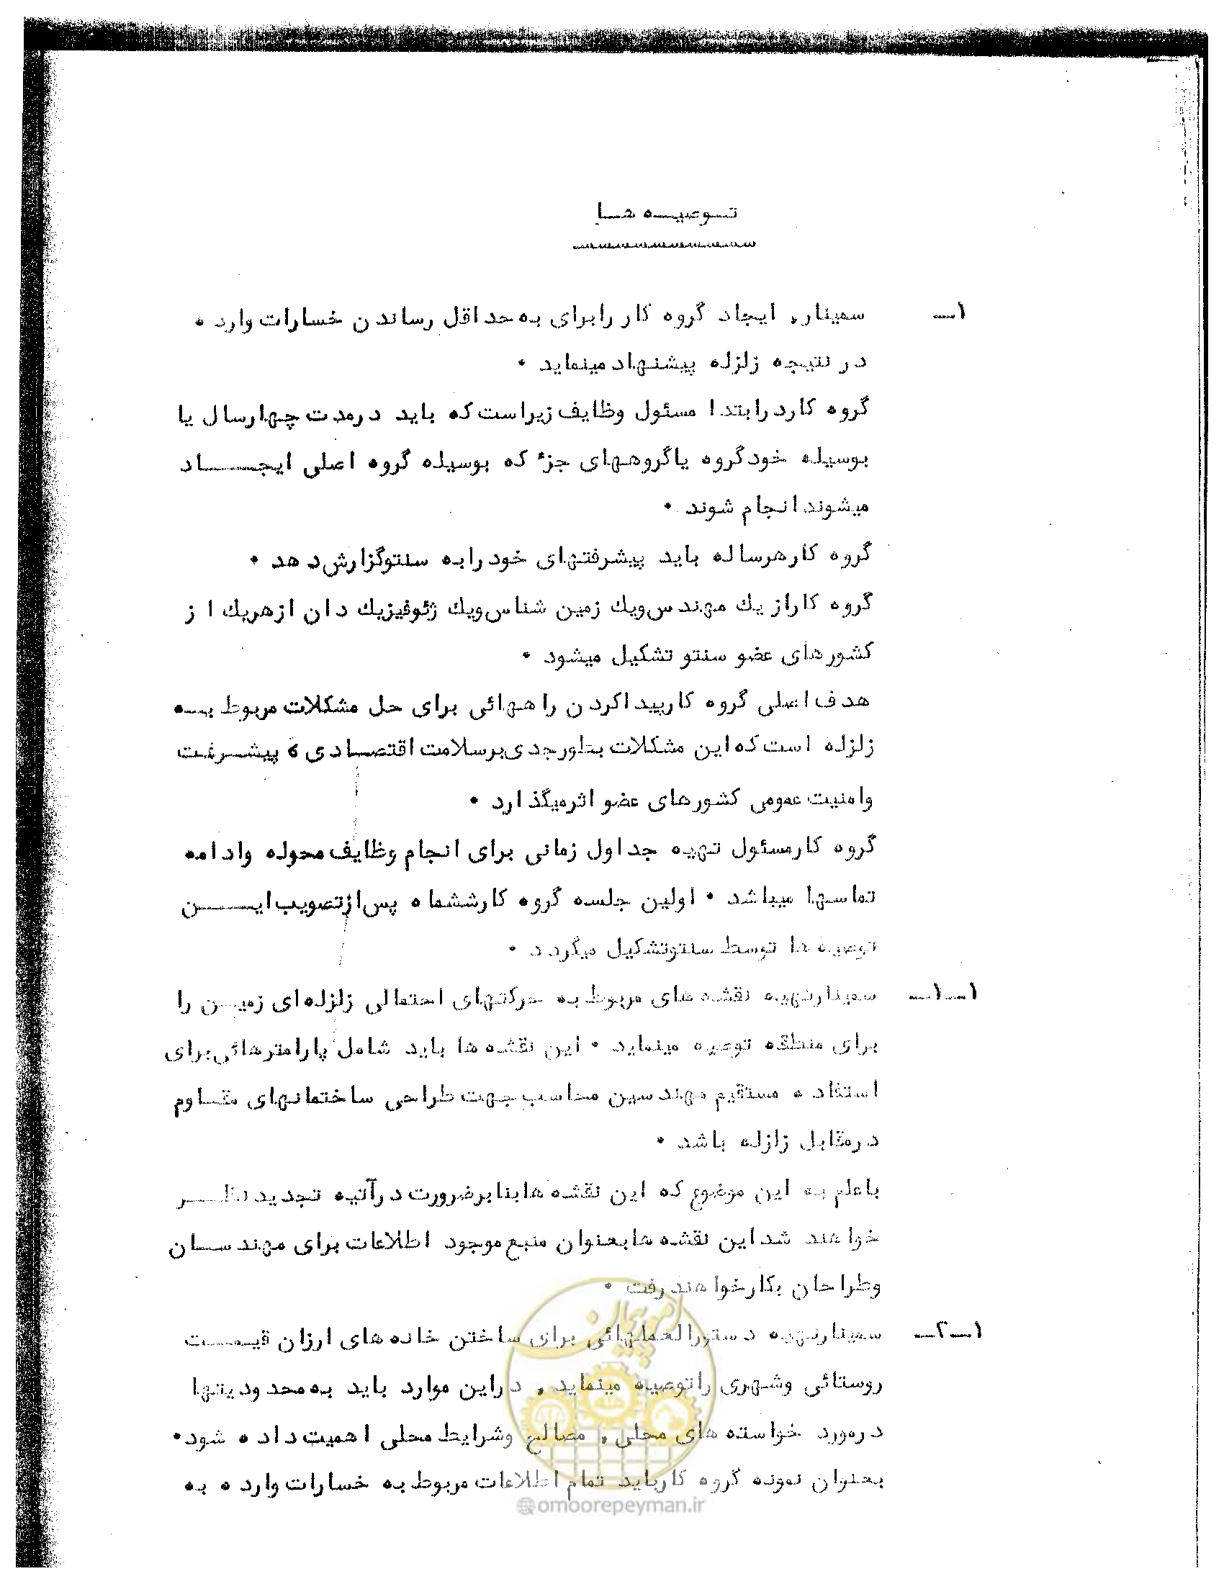 توصیه ها
۱ـ سمینار، ایجاد گروه کار رابرای به حداقل رساندن خسارات وارده
در نتیجه زلزله پیشنهاد مینماید ۰
گروه کاردرابتدا مسئول وظایف زیراست که باید درمدت چهارسال یا
بوسیله خودگروه یاگروههای جزء که بوسیله گروه اصلی ایجاد
میشوند انجام شوند ۰
گروه کارهرساله باید پیشرفتهای خودرابه سنتوگزارش دهد ۰
گروه کاراز یك مهندس ویك زمین شناس ویك ژئوفیزیك دان ازهریك از
کشورهای عضو سنتو تشکیل میشود ۰
هدف اصلی گروه کارپیداکردن راههائی برای حل مشکلات مربوط به
زلزله است که این مشکلات بطورجدی برسلامت اقتصادی ، پیشرفت
وامنیت عمومی کشورهای عضو اثرمیگذارد ۰
گروه کارمسئول تهیه جداول زمانی برای انجام وظایف محوله وادامه
تماسها میباشد ۰ اولین جلسه گروه کارششماه پس ازتصویب این
توصیه ها توسط سنتوتشکیل میگردد ۰
۱ـ۱ـ سمینارتهیه نقشه های مربوط به حرکتهای احتمالی زلزله ای زمین را
برای منطقه توصیه مینماید ۰ این نقشه ها باید شامل پارامترهائی برای
استفاده مستقیم مهندسین محاسب جهت طراحی ساختمانهای مقاوم
درمقابل زلزله باشد ۰
باعلم به این موضوع که این نقشه هابنابرضرورت درآتیه تجدیدنظر
خواهند شد این نقشه هابعنوان منبع موجود اطلاعات برای مهندسان
وطراحان بکارخواهندرفت ۰
۱ـ۲ـ سمینارتهیه دستورالعملهائی برای ساختن خانه های ارزان قیمت
روستائی وشهری راتوصیه مینماید ، دراین موارد باید به محدودیتها
درمورد خواسته های محلی ، مصالح وشرایط محلی اهمیت داده شود۰
بعنوان نمونه گروه کارباید تمام اطلاعات مربوط به خسارات وارده به
امور پیمان
@omoorepeyman.ir